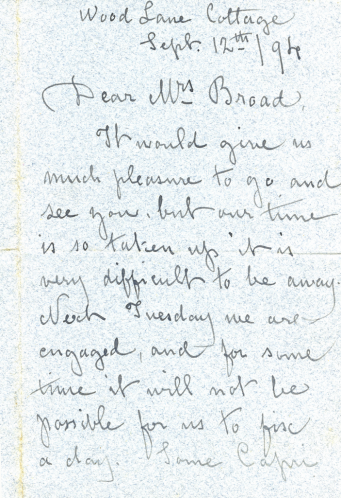 Wood Lane Cottage
Sept. 12th /94
Dear Mrs Broad,
It would give us
much pleasure to go and
see you, but our time
is so taken up it is
very difficult to be away.
Next Tuesday we are
engaged, and for some
time it will not be
possible for us to fix
a day. Some Capri